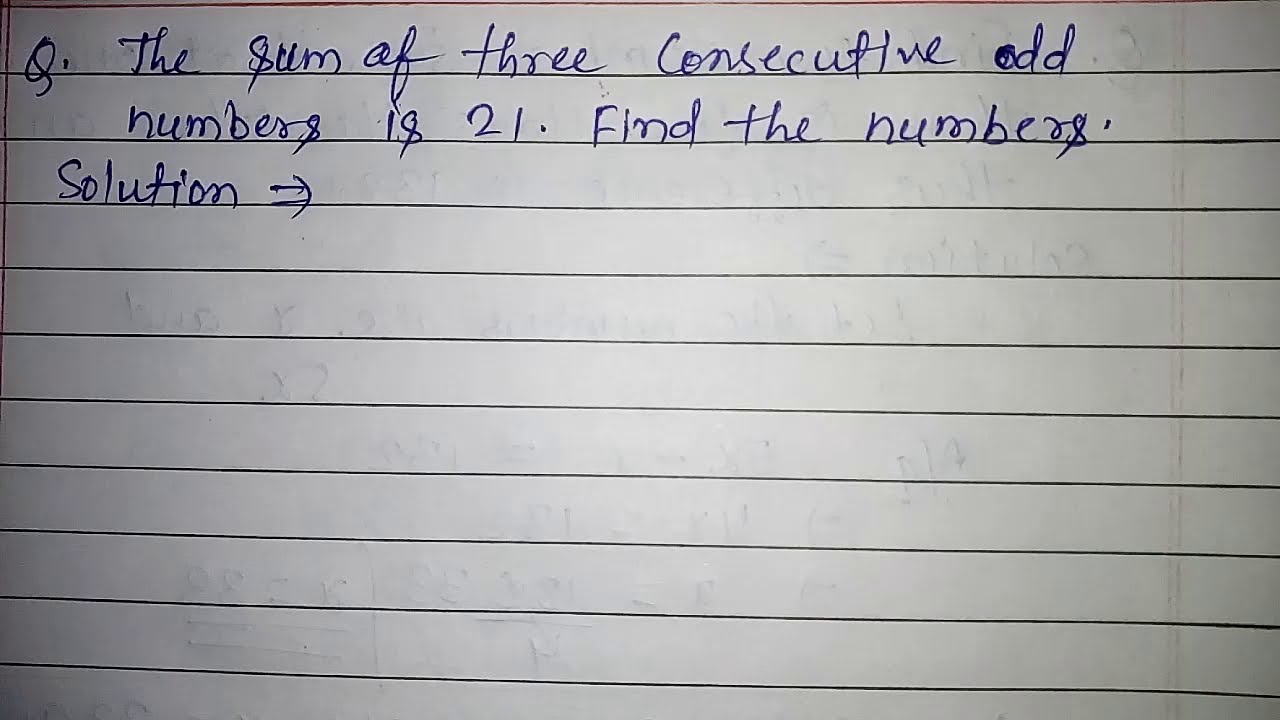 Q. The sum of three consecutive odd
numbers is 21. Find the numbers.
Solution ⇒